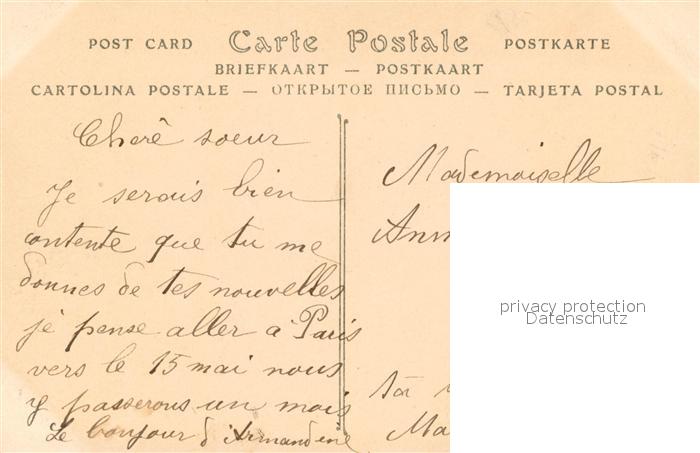 POST CARD Carte Postale POSTKARTE
BRIEFKAART — POSTKAART
CARTOLINA POSTALE — ОТКРЫТОЕ ПИСЬМО — TARJETA POSTAL
Cherè soeur
Je serais bien
contente que tu me
donnes de tes nouvelles
jè pense aller à Paris
vers le 15 mai nous
y passerons un mois
Le bonjour d'Armandine
Mademoiselle
Ann
privacy protection
Datenschutz
Ma